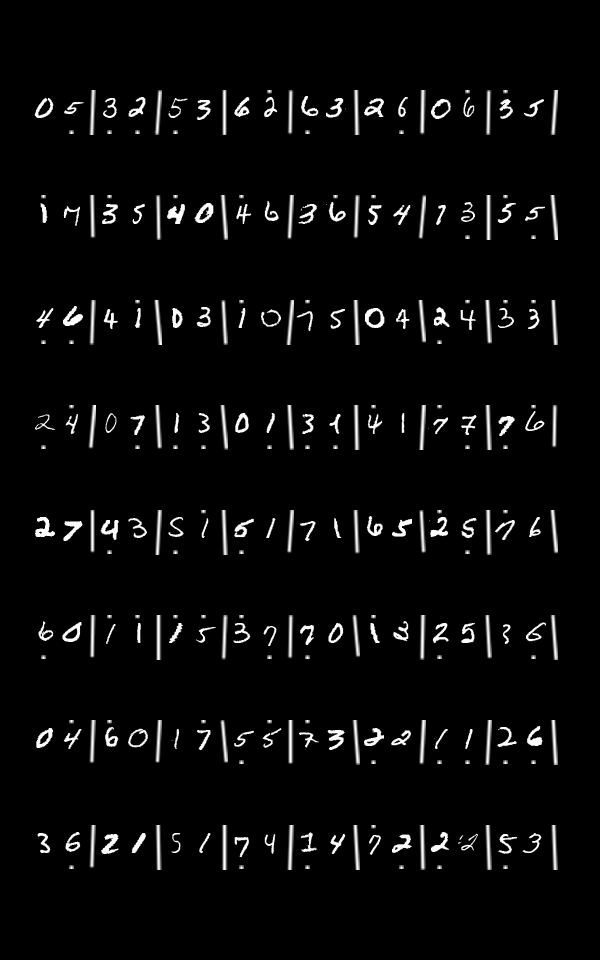 0 5 | 3 2 | 5 3 | 6 2 | 6 3 | 2 6 | 0 6 | 3 5 |
1 7 | 3 5 | 4 0 | 4 6 | 3 6 | 5 4 | 1 3 | 5 5 |
4 6 | 4 1 | 0 3 | 1 0 | 7 5 | 0 4 | 2 4 | 3 3 |
2 4 | 0 7 | 1 3 | 0 1 | 3 1 | 4 1 | 7 7 | 7 6 |
2 7 | 4 3 | 5 1 | 5 1 | 7 1 | 6 5 | 2 5 | 7 6 |
6 0 | 1 1 | 1 5 | 3 7 | 7 0 | 1 3 | 2 5 | 3 6 |
0 4 | 6 0 | 1 7 | 5 5 | 7 3 | 2 2 | 1 1 | 2 6 |
3 6 | 2 1 | 5 1 | 7 4 | 1 4 | 7 2 | 2 2 | 5 3 |